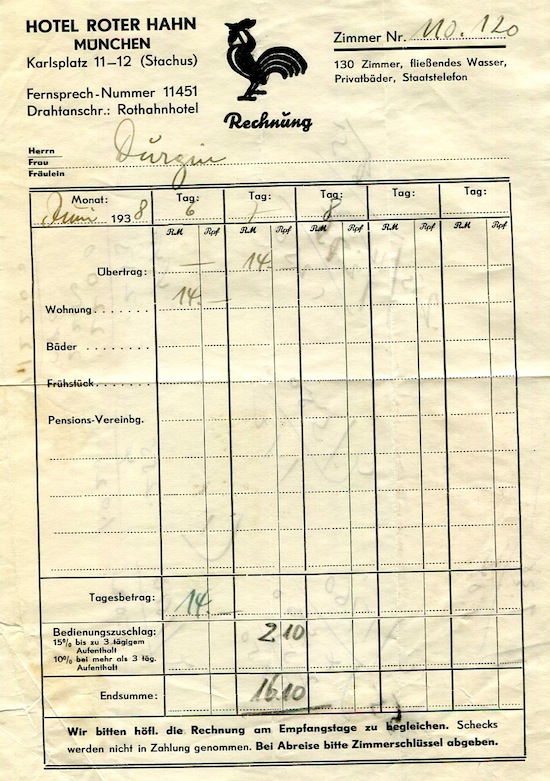 HOTEL ROTER HAHN
MÜNCHEN
Karlsplatz 11—12 (Stachus)
Fernsprech-Nummer 11451
Drahtanschr.: Rothahnhotel
Rechnung
Zimmer Nr. 110. 120
130 Zimmer, fließendes Wasser,
Privatbäder, Staatstelefon
Herrn
Frau
Fräulein
Monat: Tag: Tag: Tag: Tag: Tag:
Juni 1938 6 7 8
RM Rpf RM Rpf RM Rpf RM Rpf RM Rpf
Übertrag: — 14.—
Wohnung 14.—
Bäder
Frühstück
Pensions-Vereinbg.
Tagesbetrag: 14 —
Bedienungszuschlag: 2 10
15% bis zu 3 tägigem
Aufenthalt
10% bei mehr als 3 täg.
Aufenthalt
Endsumme: 16 10
Wir bitten höfl. die Rechnung am Empfangstage zu begleichen. Schecks
werden nicht in Zahlung genommen. Bei Abreise bitte Zimmerschlüssel abgeben.